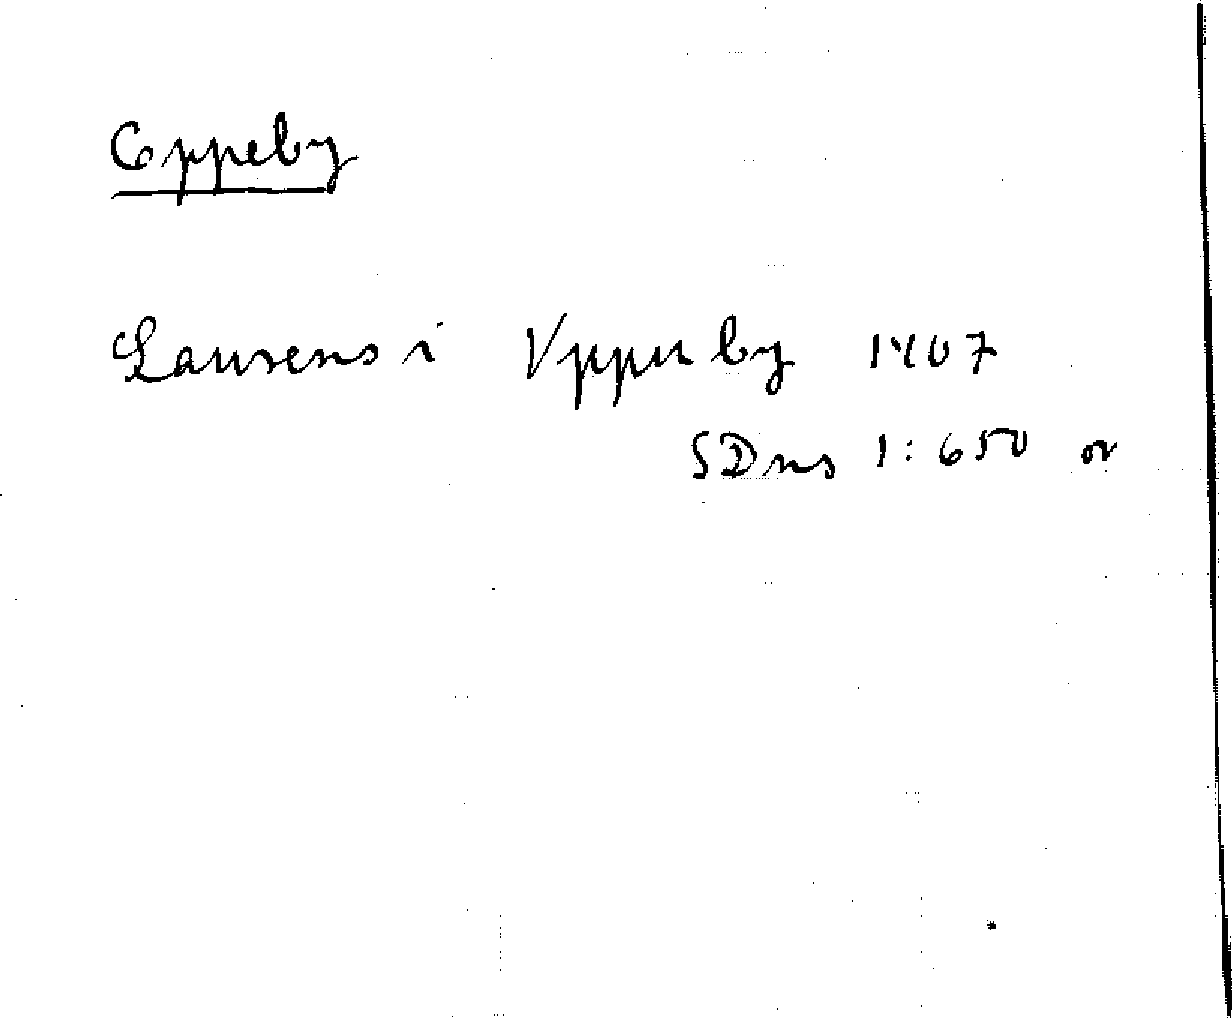 Eppeby
Laurens i Vppu by 1407
SDns 1:650 or